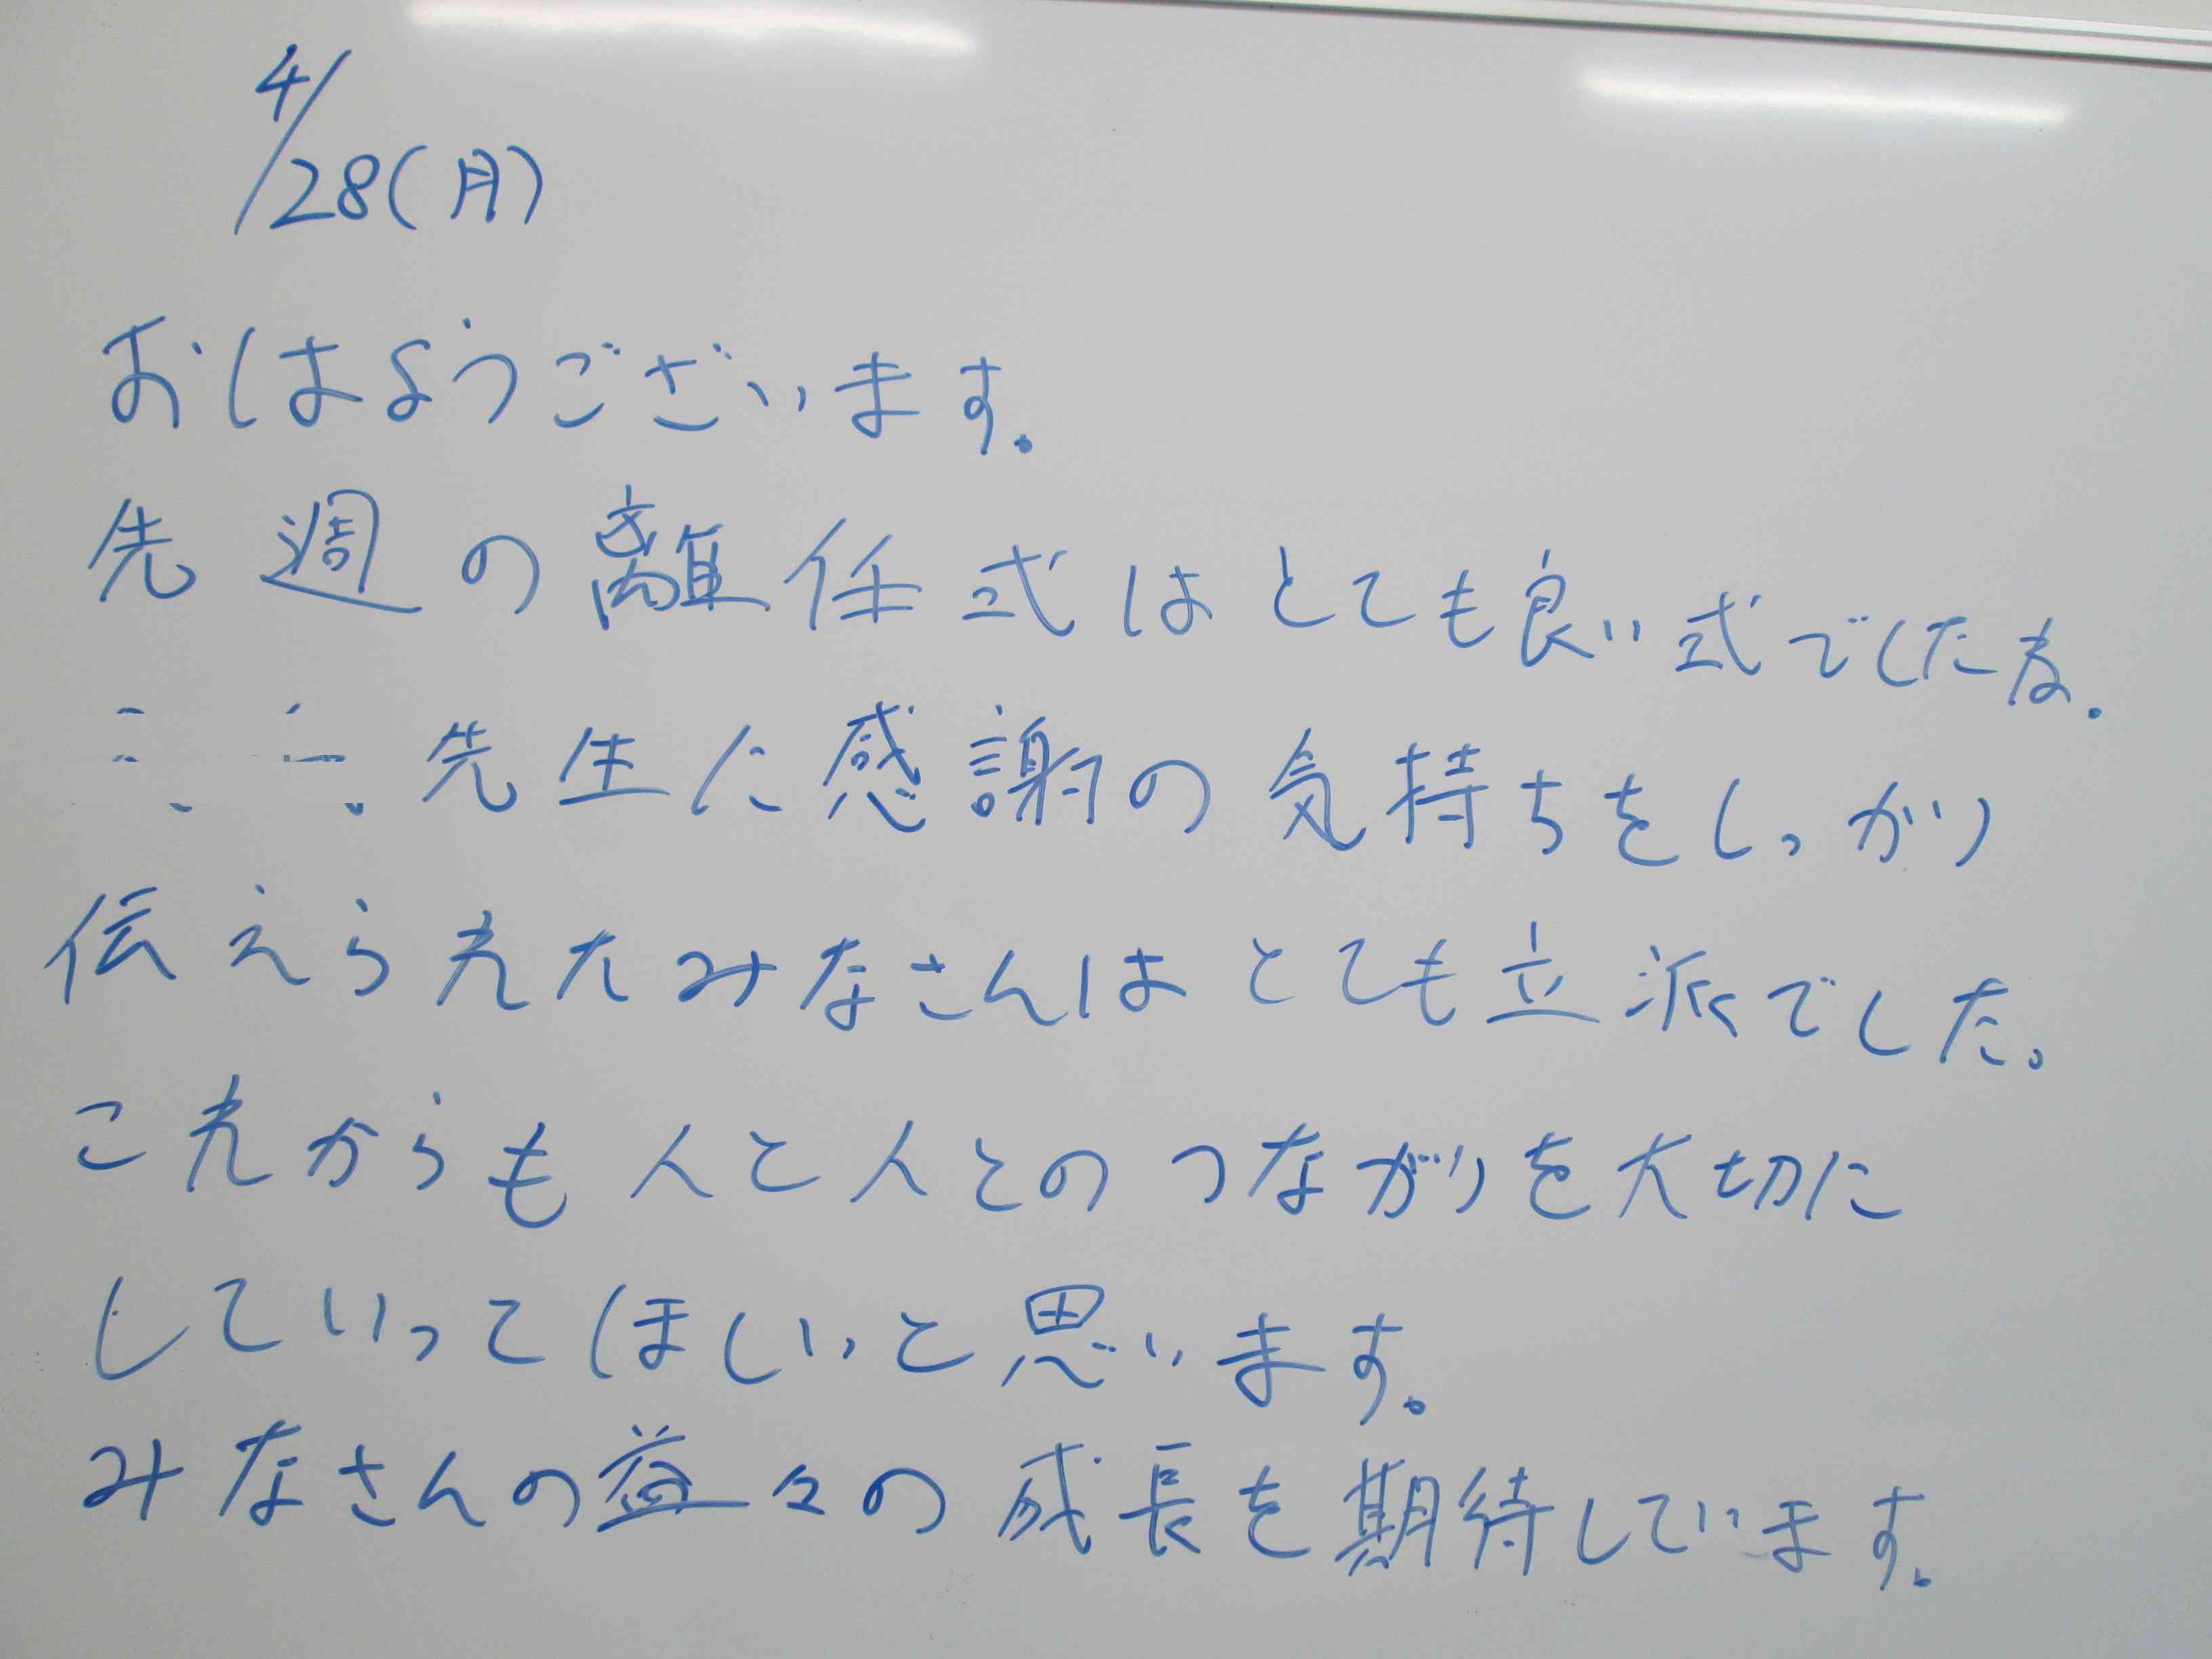 4/28(月)
おはようございます。
先週の離任式はとても良い式でしたね。
先生に感謝の気持ちをしっかり
伝えられたみなさんはとても立派でした。
これからも人と人とのつながりを大切に
していってほしいと思います。
みなさんの益々の成長を期待しています。